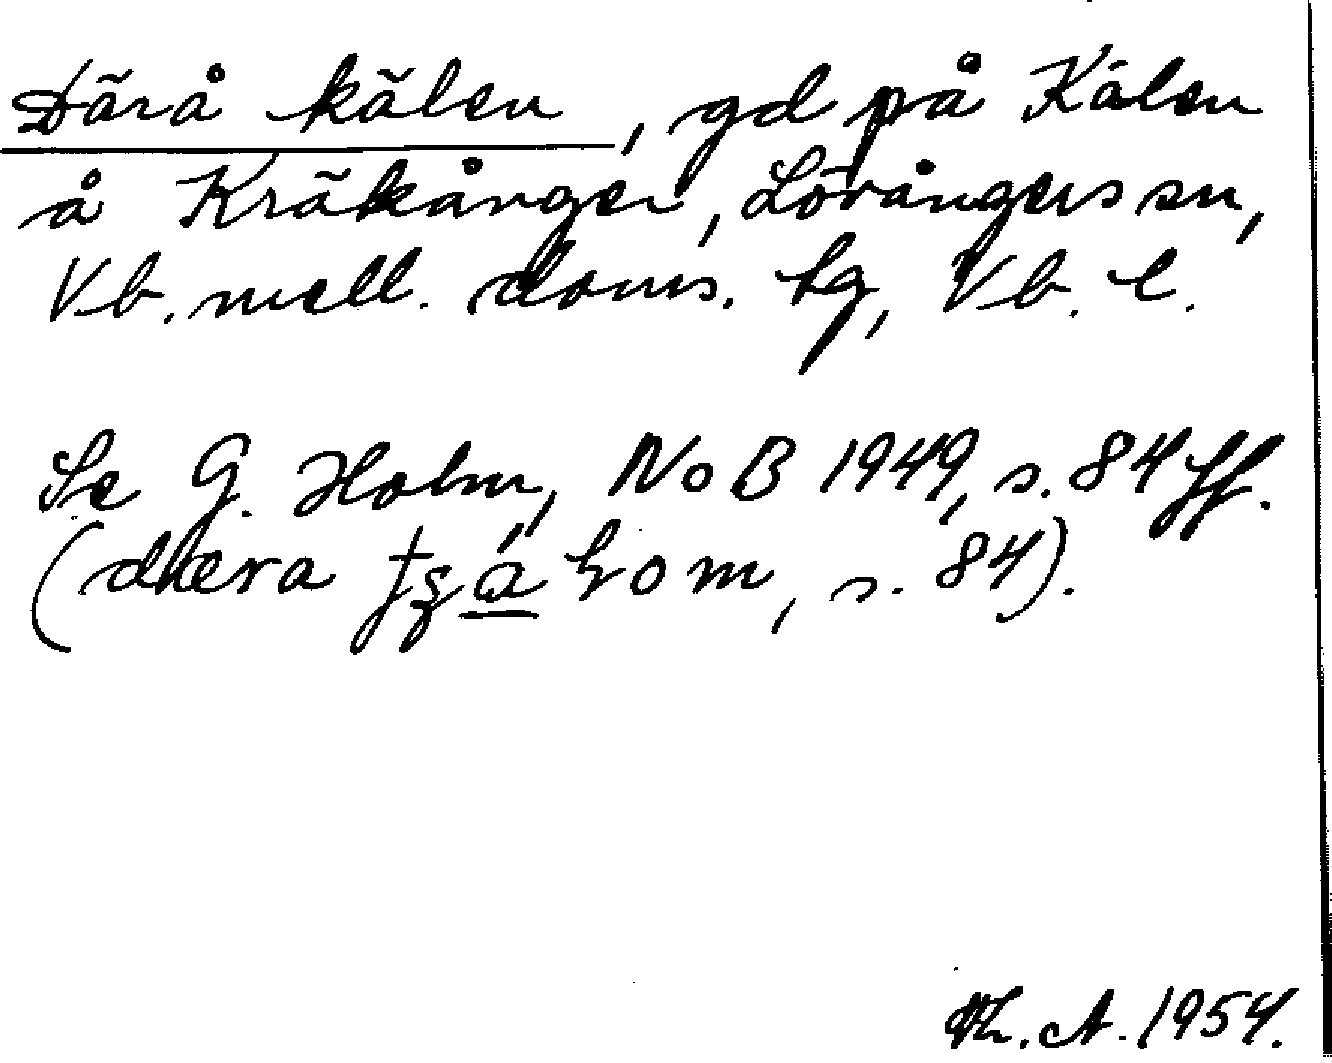 Därå kälen, gd på Kälen
å Kräkånger, Lövångers sn,
Vb. mell. doms. tg, Vb. l.
Se G. Holm, NoB 1949, s. 84 ff.
(dæra s. 84).
Th. A. 1954.